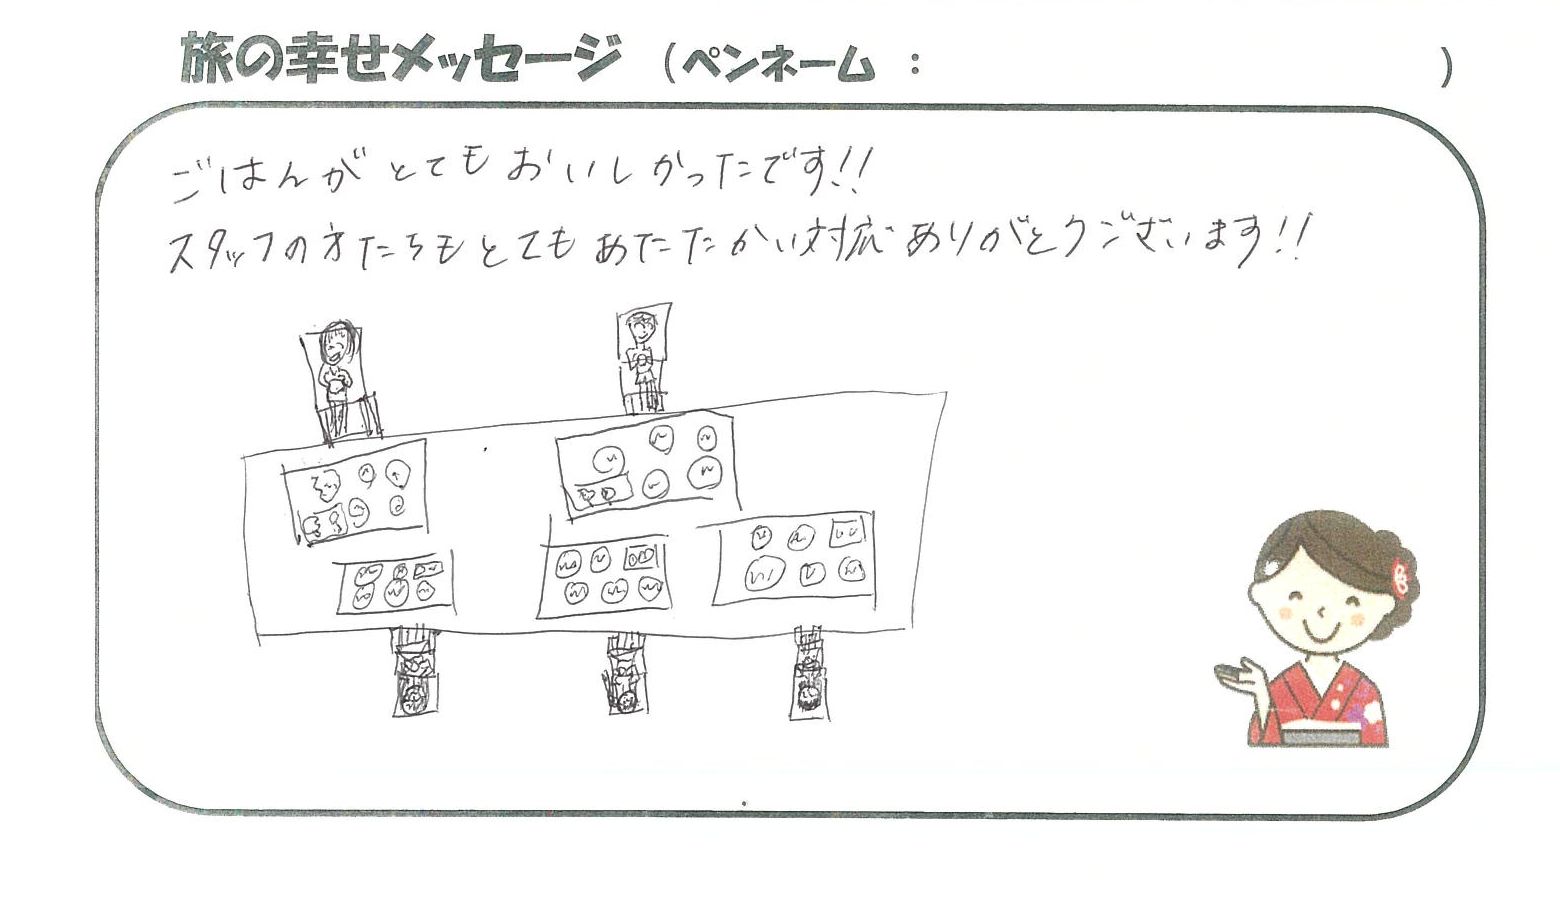 旅の幸せメッセージ (ペンネーム : )
ごはんがとてもおいしかったです!!
スタッフの方たちもとてもあたたかい対応ありがとうございます!!